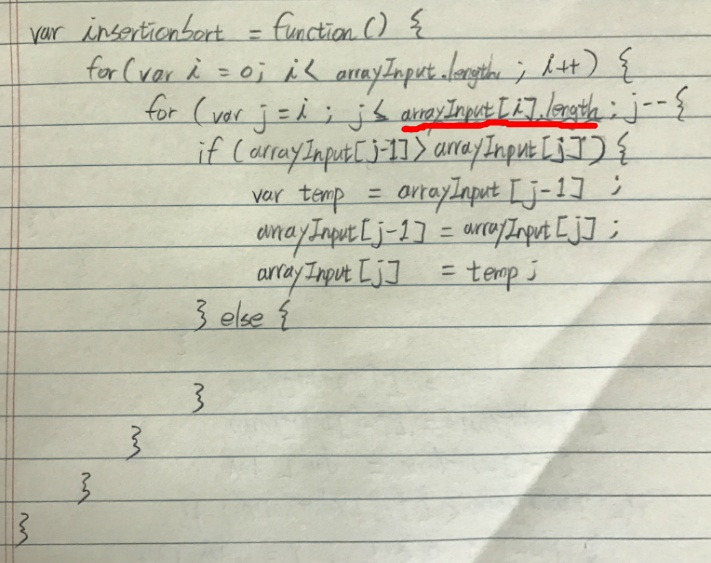 var insertionSort = function() {
for(var i = 0; i < arrayInput.length ; i++) {
for (var j = i ; j ≤ arrayInput[i].length ; j-- {
if (arrayInput[j-1] > arrayInput[j]) {
var temp = arrayInput[j-1] ;
arrayInput[j-1] = arrayInput[j] ;
arrayInput[j] = temp ;
} else {
}
}
}
}